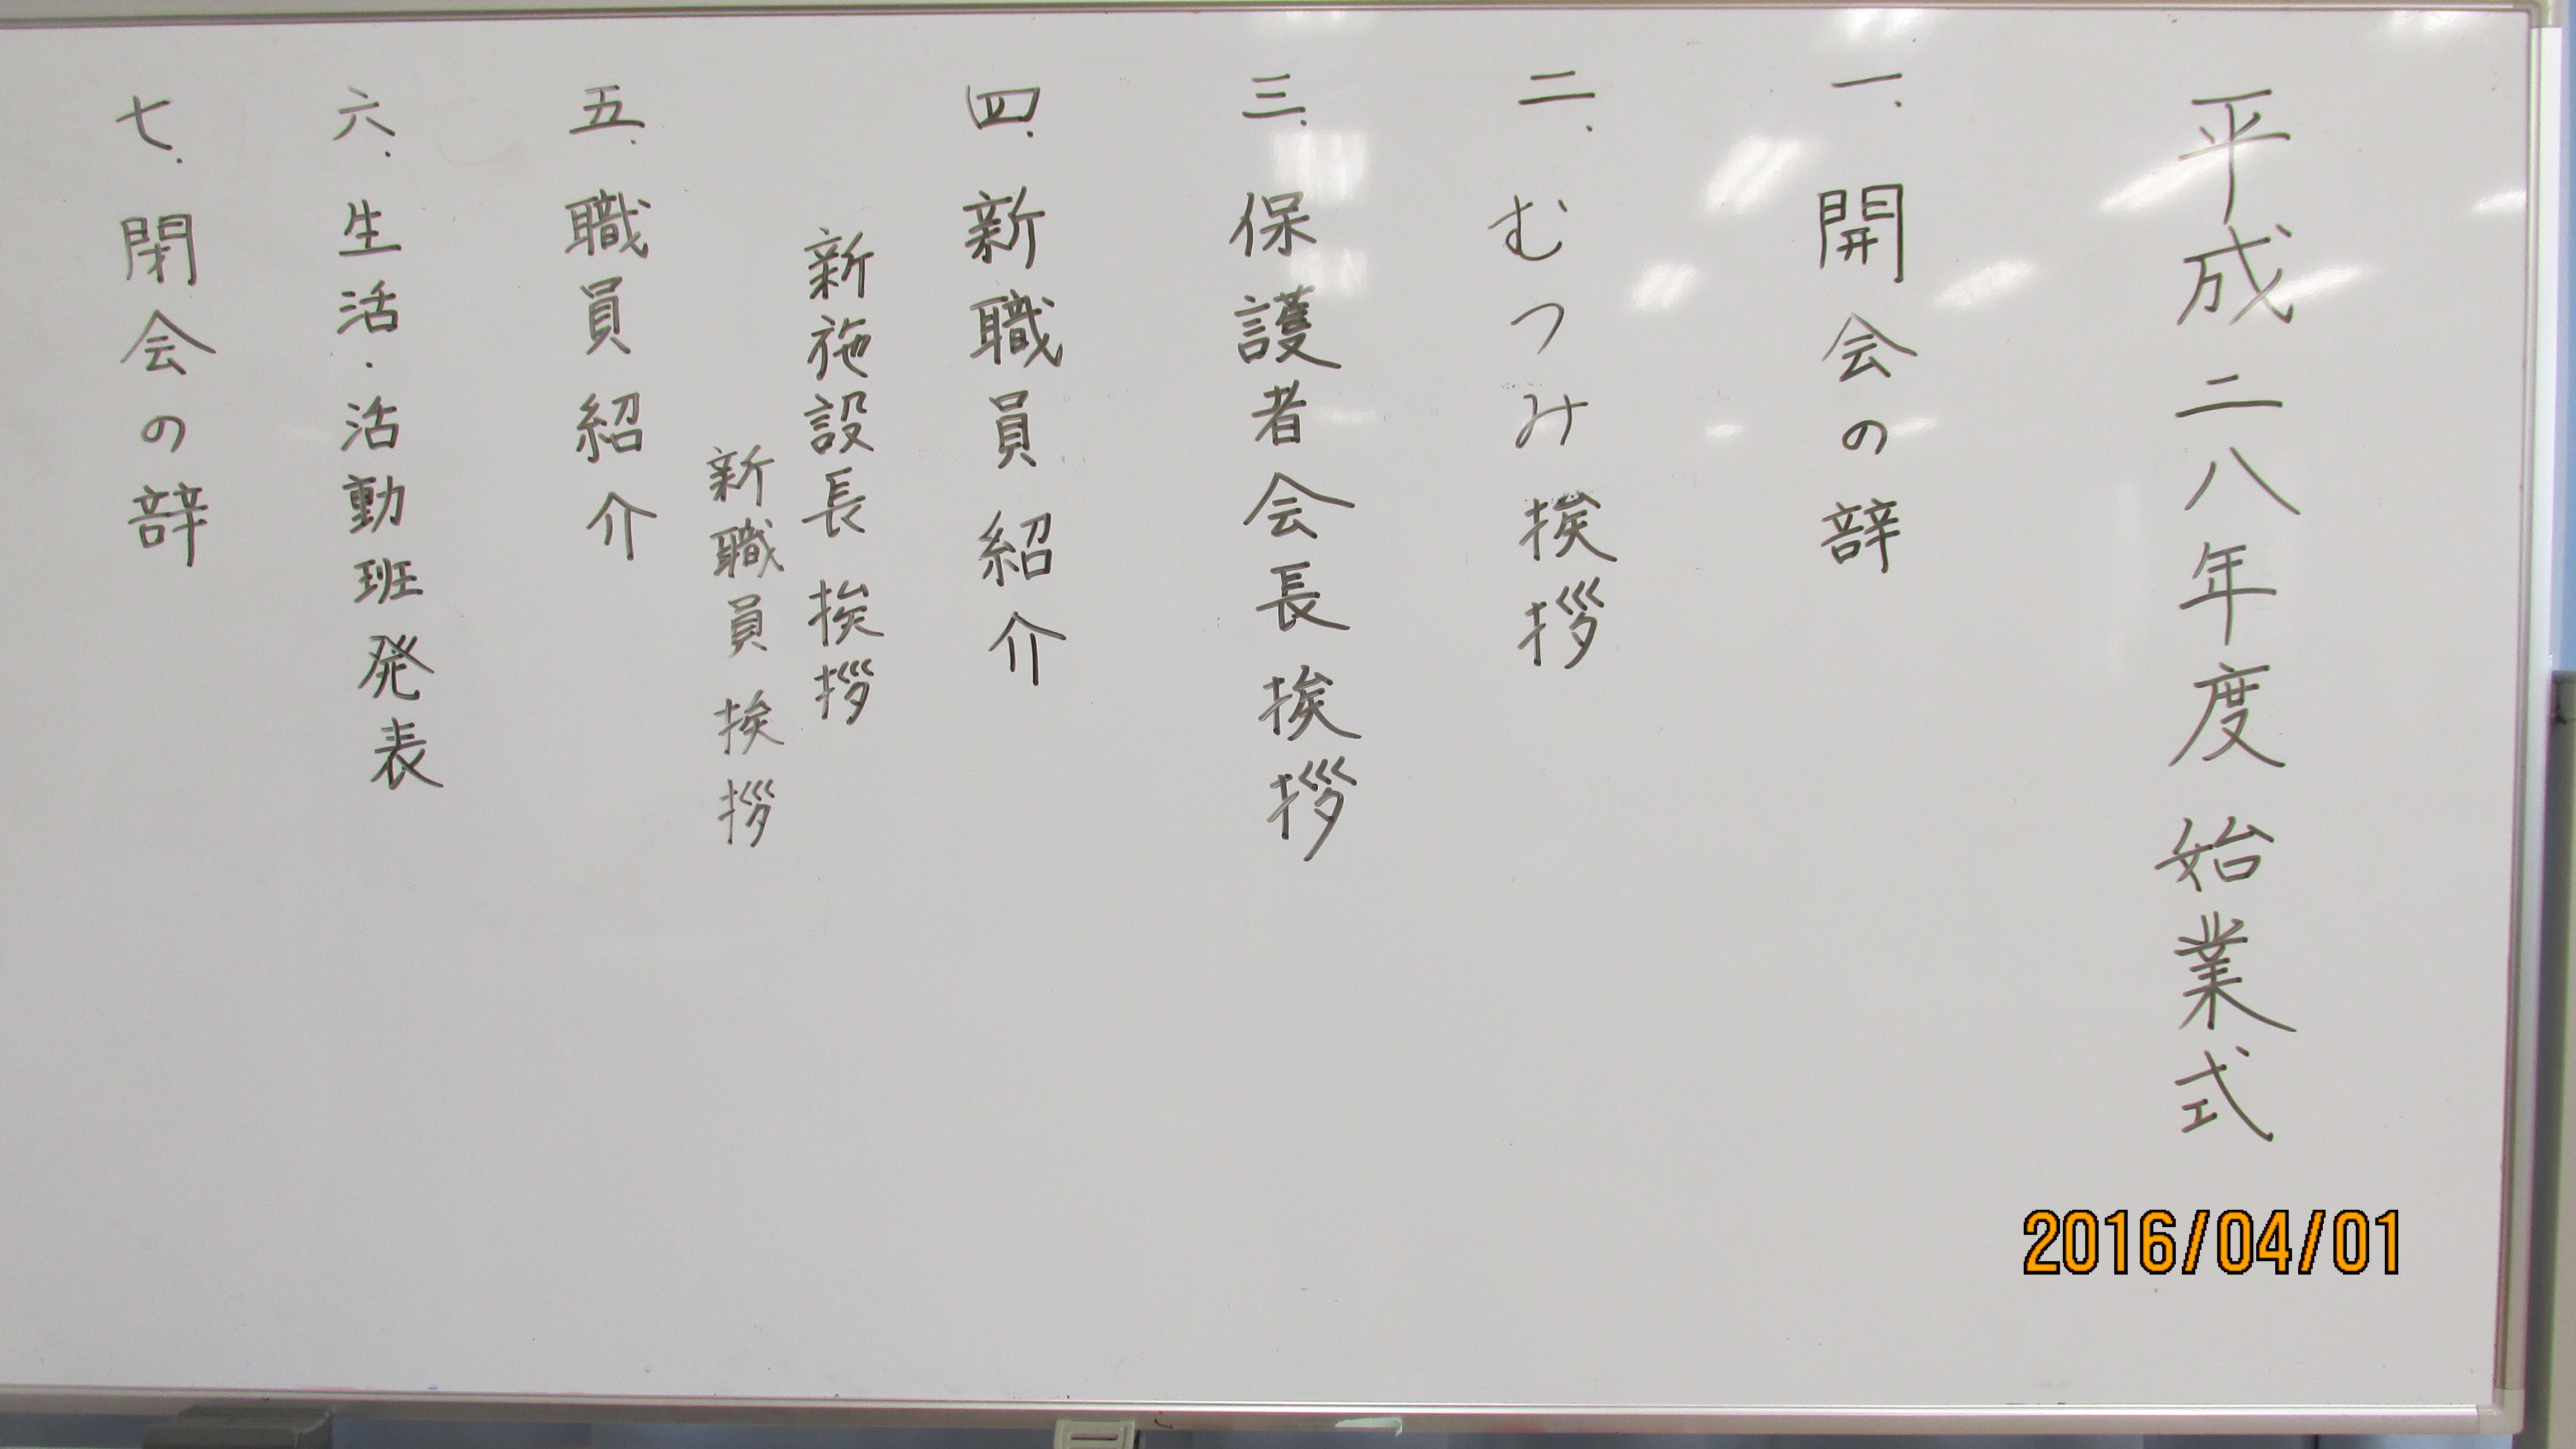 平成二八年度 始業式
一. 開会の辞
二. むつみ 挨拶
三. 保護者会長 挨拶
四. 新職員 紹介
新施設長 挨拶
新職員 挨拶
五. 職員 紹介
六. 生活・活動班 発表
七. 閉会の辞
2016/04/01